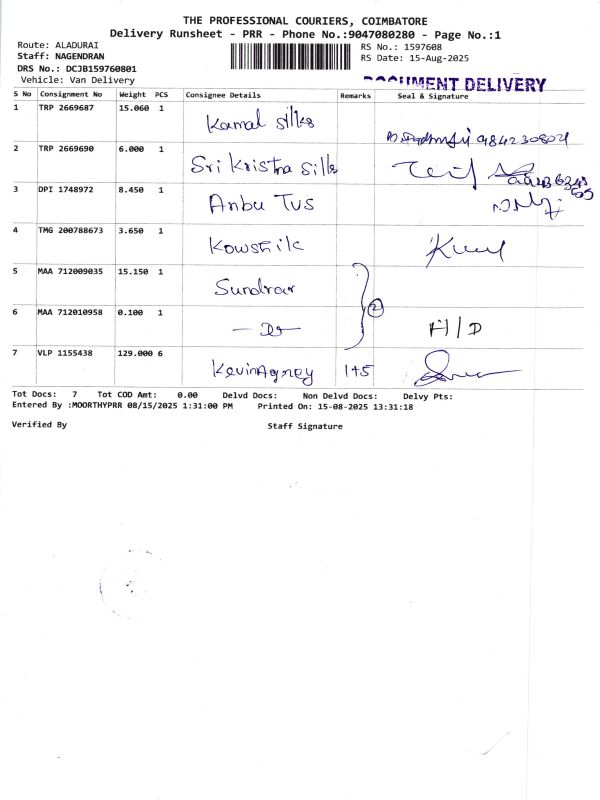 THE PROFESSIONAL COURIERS, COIMBATORE
Delivery Runsheet - PRR - Phone No.:9047080280 - Page No.:1
Route: ALADURAI
Staff: NAGENDRAN
DRS No.: DCJB159760801
Vehicle: Van Delivery
RS No.: 1597608
RS Date: 15-Aug-2025
DOCUMENT DELIVERY
S No Consignment No Weight PCS Consignee Details Remarks Seal & Signature
1 TRP 2669687 15.060 1 Kamal silks
2 TRP 2669690 6.000 1 Sri Kristna silks
3 DPI 1748972 8.450 1 Anbu Tvs
4 TMG 200788673 3.650 1 Kowshik
5 MAA 712009035 15.150 1 Sundrar
6 MAA 712010958 0.100 1 2 H/D
7 VLP 1155438 129.000 6 KevinAgney 1+5
Tot Docs: 7 Tot COD Amt: 0.00 Delvd Docs: Non Delvd Docs: Delvy Pts:
Entered By :MOORTHYPRR 08/15/2025 1:31:00 PM Printed On: 15-08-2025 13:31:18
Verified By Staff Signature